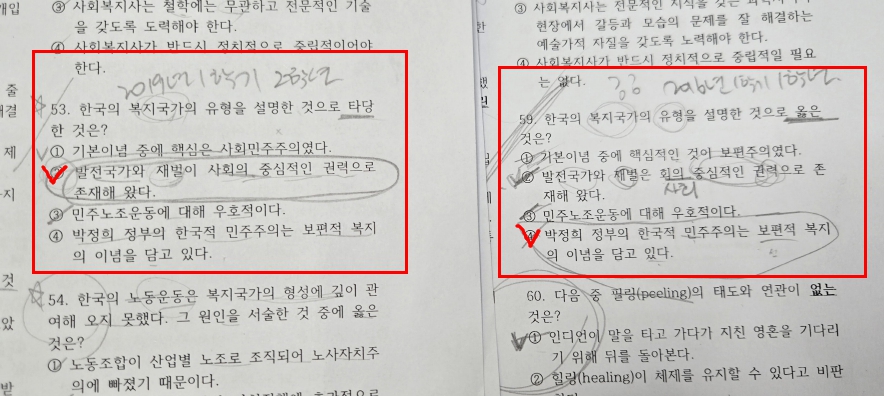 ③ 사회복지사는 철학에는 무관하고 전문적인 기술
을 갖도록 도력해야 한다.
④ 사회복지사가 반드시 정치적으로 중립적이어야
한다.
2019년 1학기 2학년
53. 한국의 복지국가의 유형을 설명한 것으로 타당
한 것은?
① 기본이념 중에 핵심은 사회민주주의였다.
② 발전국가와 재벌이 사회의 중심적인 권력으로
존재해 왔다.
③ 민주노조운동에 대해 우호적이다.
④ 박정희 정부의 한국적 민주주의는 보편적 복지
의 이념을 담고 있다.
54. 한국의 노동운동은 복지국가의 형성에 깊이 관
여해 오지 못했다. 그 원인을 서술한 것 중에 옳은
것은?
① 노동조합이 산업별 노조로 조직되어 노사자치주
의에 빠졌기 때문이다.
개입
줄
해결
제
지
것
았
받
③ 사회복지사는 전문적인 지식을 갖은
현장에서 갈등과 모습의 문제를 잘 해결하는
예술가적 자질을 갖도록 노력해야 한다.
④ 사회복지사가 반드시 정치적으로 중립적일 필요
는 없다.
2016년 1학기 1학년
59. 한국의 복지국가의 유형을 설명한 것으로 옳은
것은?
① 기본이념 중에 핵심적인 것이 보편주의였다.
② 발전국가와 재벌은 회의 중심적인 권력으로 존
재해 왔다.
사회
③ 민주노조운동에 대해 우호적이다.
④ 박정희 정부의 한국적 민주주의는 보편적 복지
의 이념을 담고 있다.
60. 다음 중 필링(peeling)의 태도와 연관이 없는
것은?
① 인디언이 말을 타고 가다가 지친 영혼을 기다리
기 위해 뒤를 돌아본다.
② 힐링(healing)이 체제를 유지할 수 있다고 비판